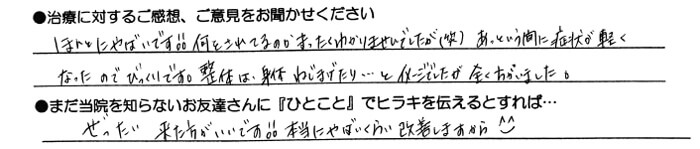 ●治療に対するご感想、ご意見をお聞かせください
ほんとにやばいです!! 何をされてるのかまったくわかりませんでしたが(笑) あっという間に症状が軽く
なったのでびっくりです。整体は、身体ねじまげたり…とイメージでしたが全くちがいました。
●まだ当院を知らないお友達さんに『ひとこと』でヒラキを伝えるとすれば…
ぜったい 来た方がいいです!! 本当にやばいくらい改善しますから ^^